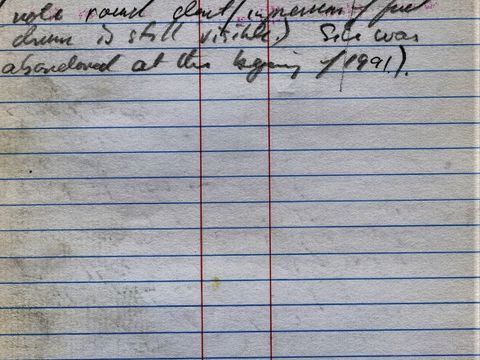 note round dent (impression of fuel
drum is still visible) Site was
abandoned at the beginning of 1991).